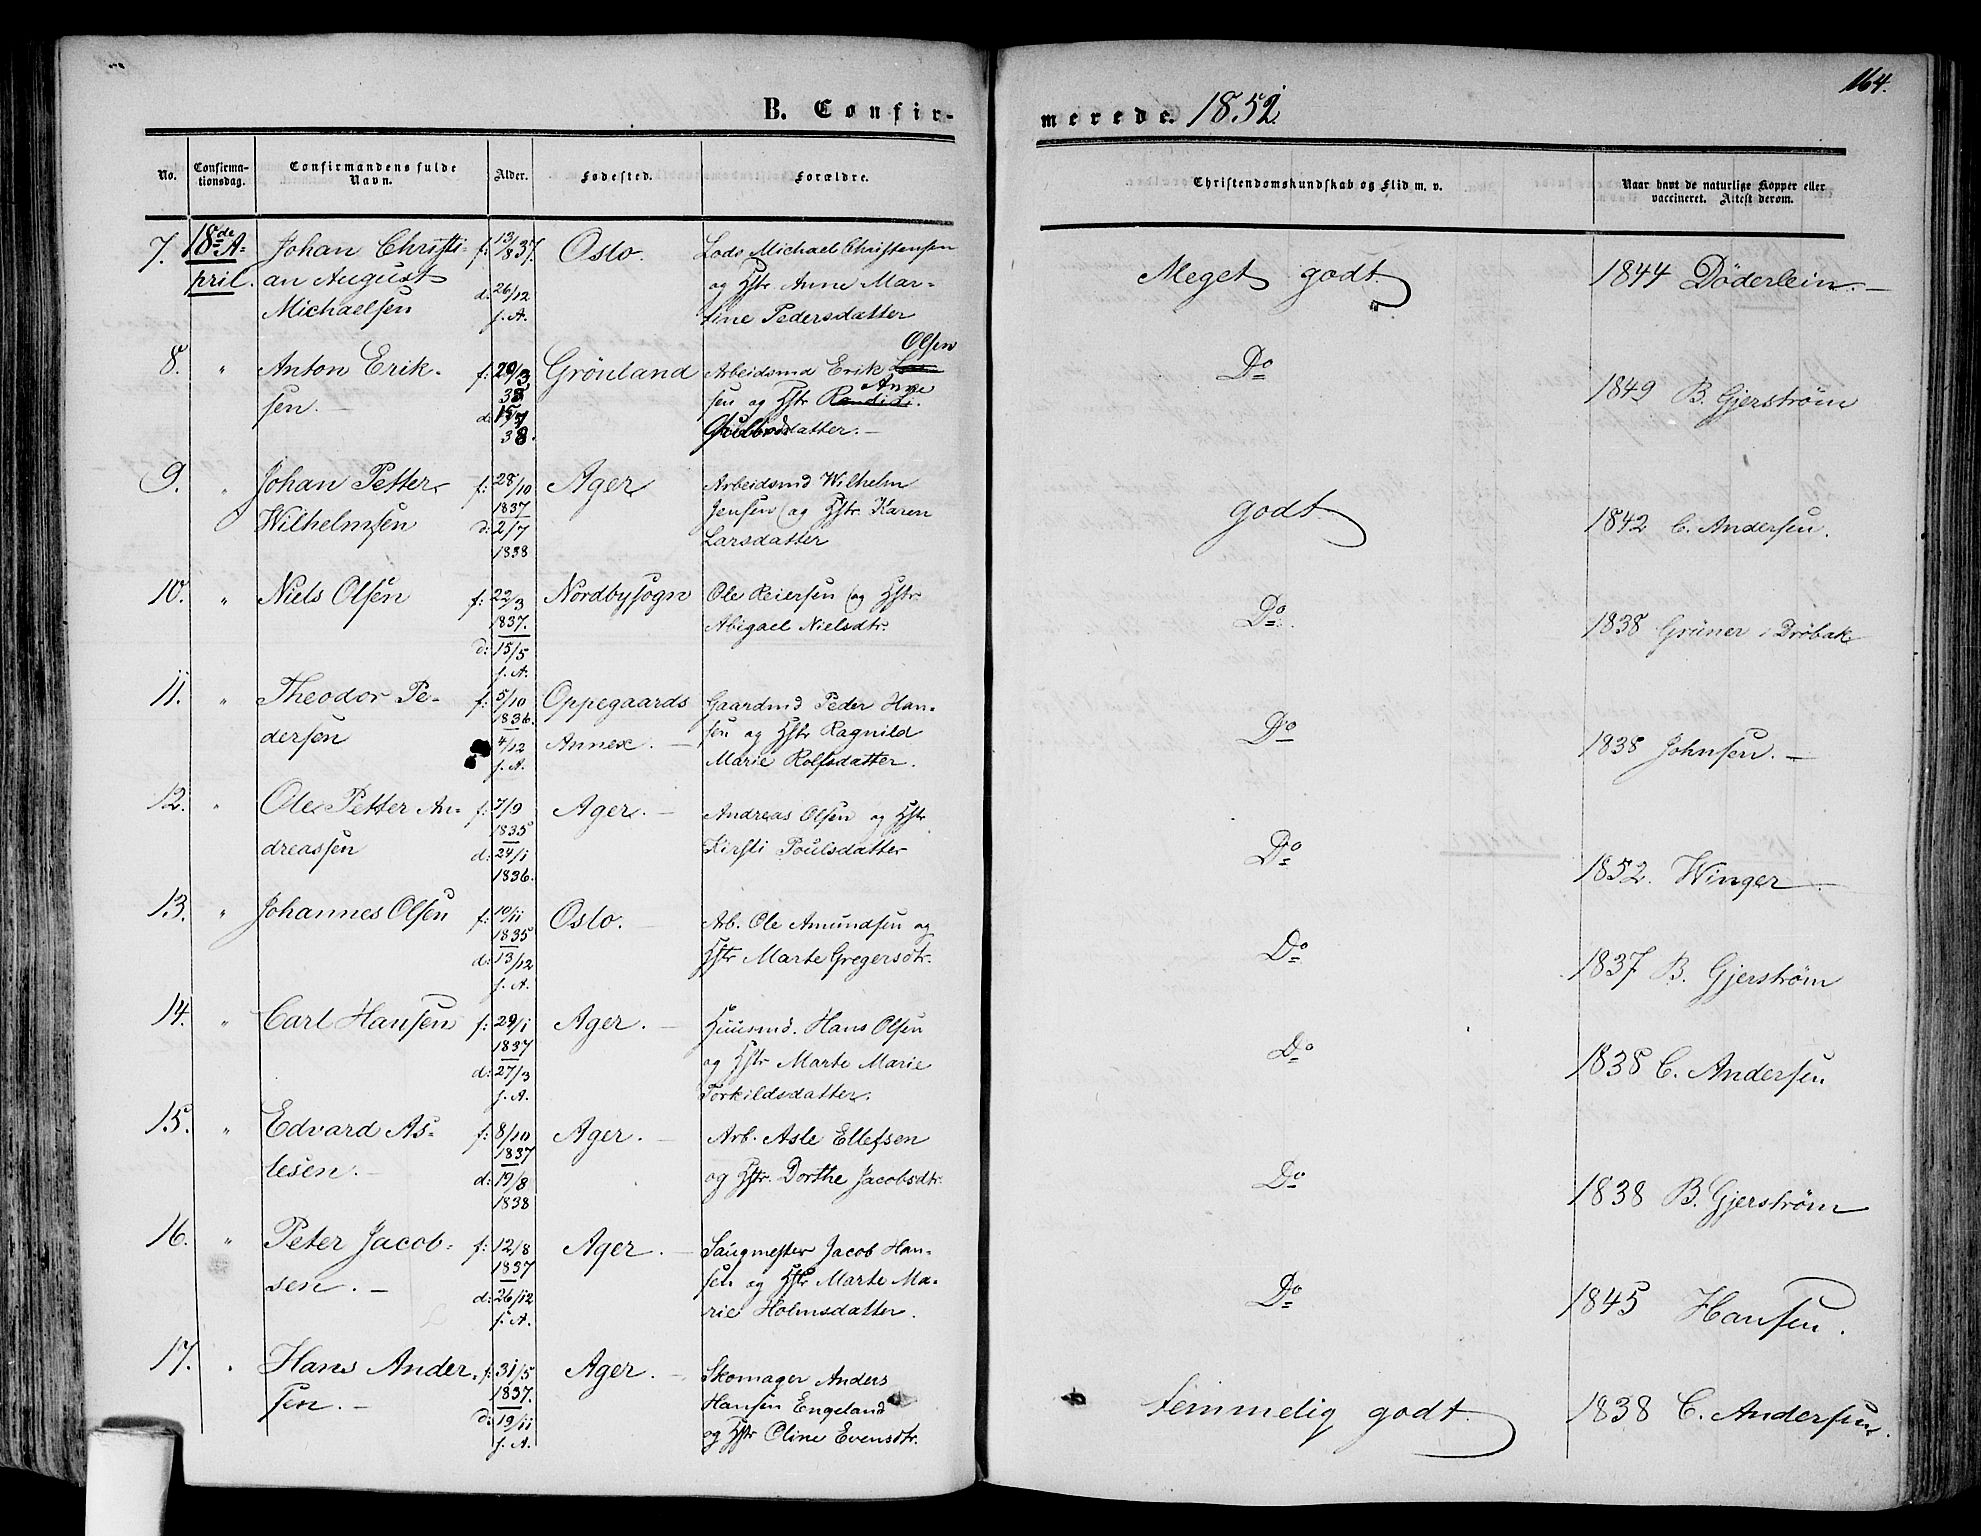 164.
B. Confir-
merede. 1852.
No.
Confirma-
tionsdag.
Confirmandens fulde
Navn.
Alder.
Fødested.
Forældre.
Christendomskundskab og Flid m. v.
Naar havt de naturlige Kopper eller
vaccineret. Attest derom.
7. 18de A- Johan Christi- f: 13/8 37. Oslo. Lods Michael Christensen
pril. an August d: 26/12 og Hstr. Anne Mar-
Michaelsen s. A. tine Pedersdatter
Meget godt. 1844 Döderlein. —
8. " Anton Erik- f: 20/3 Grönland Arbeidsmd Erik Olsen
sen. — 38 sen og Hstr Anne
d: 15/7
38. datter. —
Do 1849 B. Gjerström
9. " Johan Petter f: 28/10 Ager Arbeidsmd Wilhelm
Wilhelmsen 1837 Jensen og Hstr. Karen
d: 2/7 Larsdatter
1838
godt. 1842 C. Andersen.
10. " Niels Olsen f: 22/3 Nordbysogn Ole Reiersen og Hstr.
1837. Abigael Nielsdtr.
d: 15/5
s. A.
Do 1838 Grüner i Dröbak
11. " Theodor Pe- f: 5/10 Oppegaards Gaardmd Peder Han-
dersen 1836. sen og Hstr Ragnild
4/12 Annex. — Marie Rolfsdatter.
s. A.
Do 1838 Johnsen. —
12. " Ole Petter An- f: 7/9 Ager. — Andreas Olsen og Hstr
dreassen 1835 Kirsti Poulsdatter
d: 24/1
1836.
Do 1852. Winger —
13. " Johannes Olsen f: 10/11 Oslo. — Arb. Ole Amundsen og
1835 Hstr Marte Gregersdtr.
d: 13/12
s. A.
Do 1837 B. Gjerström
14. " Carl Hansen f: 29/1 Ager. — Huusmd. Hans Olsen
1837 og Hstr Marte Marie
d: 27/3 Torkildsdatter.
s. A.
Do 1838 C. Andersen
15. " Edvard As- f: 8/10 Ager. — Arb. Asle Ellefsen
lesen. — 1837 og Hstr. Dorthe Jacobsdtr.
d: 19/8
1838
Do 1838 B. Gjerström
16. " Peter Jacob- f: 12/8 Ager. — Saugmester Jacob Han-
sen. — 1837 sen og Hstr Marte Ma-
d: 26/12 rie Holmsdatter.
s. A.
Do 1845 Hansen.
17. " Hans Ander- f: 31/5 Ager. — Skomager Anders
sen. — 1837. Hansen Engeland
d: 19/11 og Hstr Oline Evensdtr.
s. A.
temmelig godt. 1838 C. Andersen.